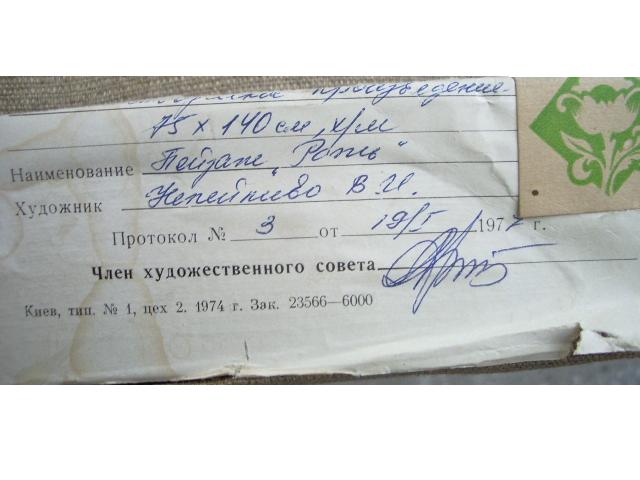 произведение
75 х 140 см, х/м
Наименование Пейзаж „Рожь"
Художник Непейпиво В. И.
Протокол № 3 от 19/I 1977 г.
Член художественного совета
Киев, тип. № 1, цех 2. 1974 г. Зак. 23566—6000